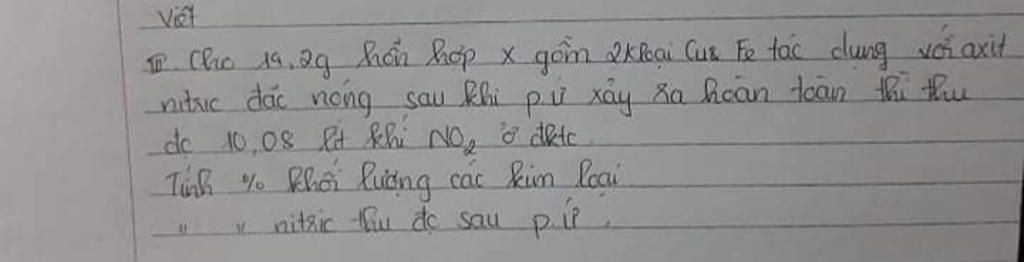 Viết
III Cho 19,2g hỗn hợp x gồm 2kloại Cu& Fe tác dụng với axit
nitric đặc nóng sau khi p.ứ xảy ra hoàn toàn thì thu
đc 10,08 lít khí NO₂ ở đktc.
Tính % khối lượng các kim loại.
" " nitric thu đc sau p.ứ.